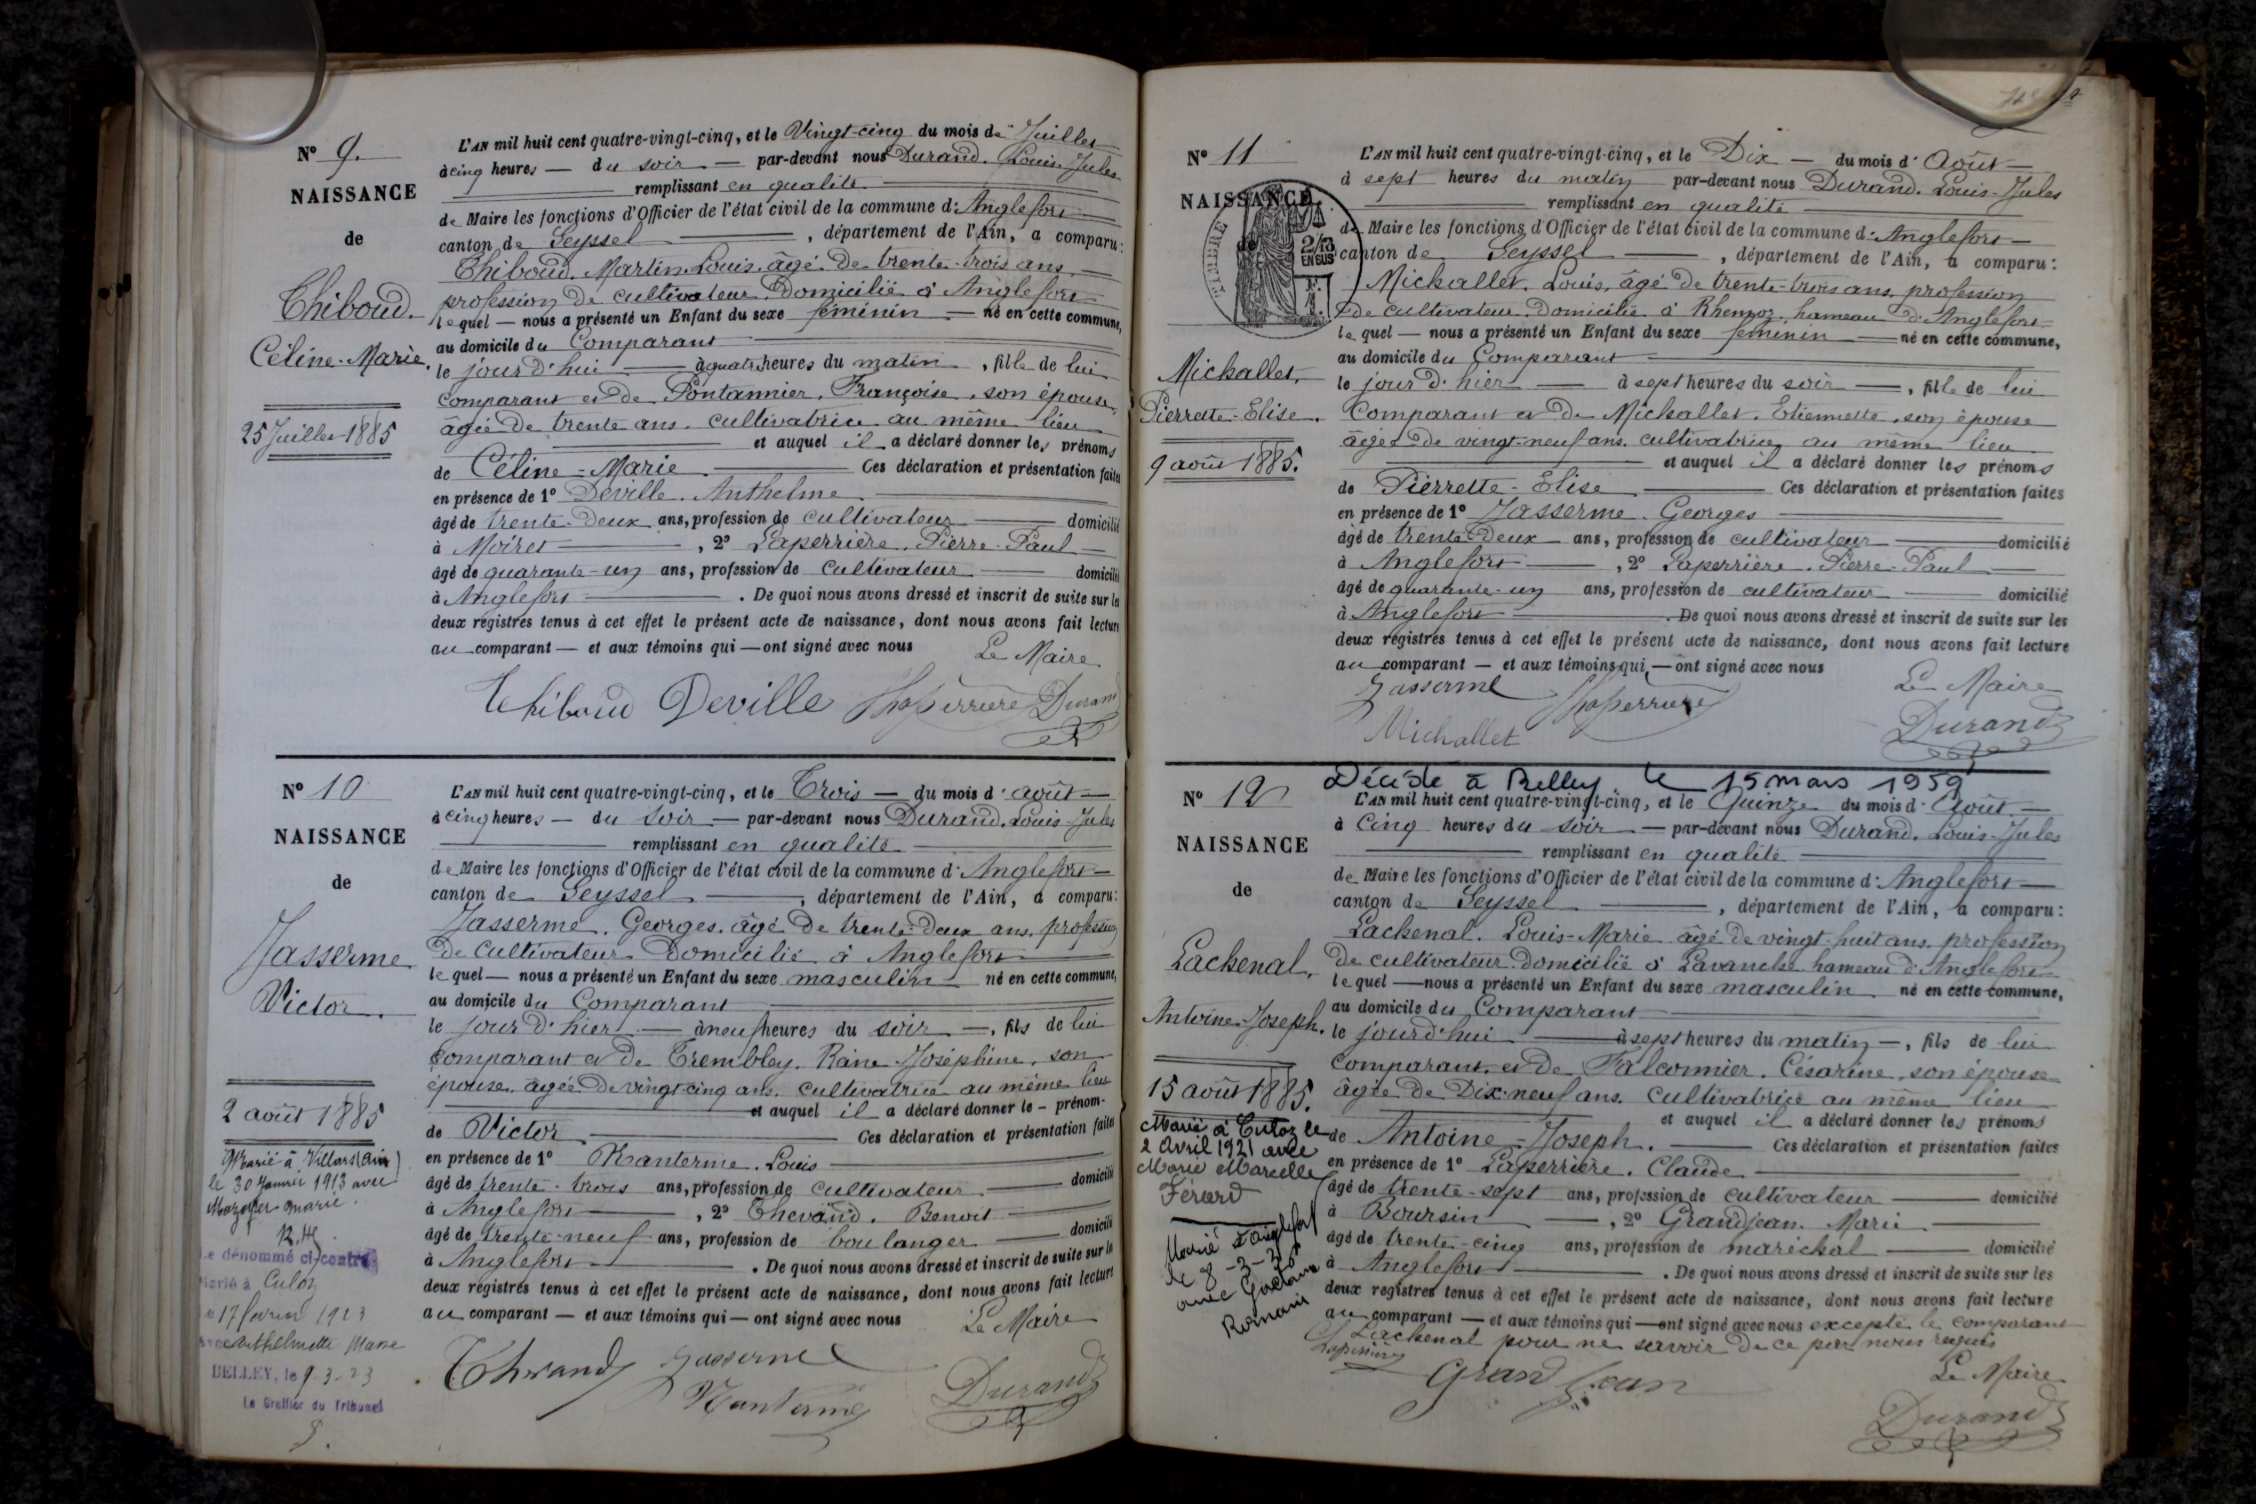 N° 9.
NAISSANCE
de
Thiboud.
Céline-Marie.
25 Juillet 1885
L'AN mil huit cent quatre-vingt-cinq, et le Vingt-cinq du mois de Juillet
à cinq heures du soir par-devant nous Durand. Louis-Jules
remplissant en qualité
de Maire les fonctions d'Officier de l'état civil de la commune d' Anglefort
canton de Seyssel, département de l'Ain, a comparu:
Thiboud. Martin-Louis. âgé de trente-trois ans.
profession de cultivateur. domicilié à Anglefort
lequel nous a présenté un Enfant du sexe féminin né en cette commune,
au domicile du Comparant
le jour d'hui à quatre heures du matin, fille de lui
comparant et de Pontannier. Françoise. son épouse.
âgée de trente ans. cultivatrice au même lieu
et auquel il a déclaré donner les prénoms
de Céline-Marie Ces déclaration et présentation faites
en présence de 1° Deville. Anthelme
âgé de trente-deux ans, profession de cultivateur domicilié
à Moiret, 2° Laperrière. Pierre-Paul
âgé de quarante-un ans, profession de cultivateur domicilié
à Anglefort. De quoi nous avons dressé et inscrit de suite sur les
deux registres tenus à cet effet le présent acte de naissance, dont nous avons fait lecture
au comparant et aux témoins qui ont signé avec nous
Le Maire
Thiboud Deville Laperriere Durand
N° 10
NAISSANCE
de
Jasserme
Victor.
2 août 1885
Marié à Villars (Ain)
le 30 Janvier 1913 avec
Marie.
Le dénommé ci-contre
Marié à Culoz
le 17 février 1923
avec Anthelmette Marie
BELLEY, le 9-3-23
Le Greffier du Tribunal
L'AN mil huit cent quatre-vingt-cinq, et le Trois du mois d' août
à cinq heures du soir par-devant nous Durand. Louis-Jules
remplissant en qualité
de Maire les fonctions d'Officier de l'état civil de la commune d' Anglefort
canton de Seyssel, département de l'Ain, a comparu:
Jasserme. Georges. âgé de trente-deux ans. profession
de Cultivateur domicilié à Anglefort
lequel nous a présenté un Enfant du sexe masculin né en cette commune,
au domicile du Comparant
le jour d'hier à neuf heures du soir, fils de lui
comparant et de Trembley. Reine-Joséphine. son
épouse. âgée de vingt-cinq ans. cultivatrice au même lieu
et auquel il a déclaré donner le prénom
de Victor Ces déclaration et présentation faites
en présence de 1° Manterme. Louis
âgé de trente-trois ans, profession de cultivateur domicilié
à Anglefort, 2° Thevand. Benoit
âgé de trente-neuf ans, profession de boulanger domicilié
à Anglefort. De quoi nous avons dressé et inscrit de suite sur les
deux registres tenus à cet effet le présent acte de naissance, dont nous avons fait lecture
au comparant et aux témoins qui ont signé avec nous
Le Maire
Jasserme
Manterme Durand
N° 11
NAISSANCE
de
TIMBRE
2/10
EN SUS
Michallet.
Pierrette-Elise.
9 août 1885.
L'AN mil huit cent quatre-vingt-cinq, et le Dix du mois d' Août
à sept heures du matin par-devant nous Durand. Louis-Jules
remplissant en qualité
de Maire les fonctions d'Officier de l'état civil de la commune d' Anglefort
canton de Seyssel, département de l'Ain, a comparu:
Michallet. Louis, âgé de trente-trois ans. profession
de cultivateur. domicilié à Rhemoz. hameau d'Anglefort
lequel nous a présenté un Enfant du sexe féminin né en cette commune,
au domicile du Comparant
le jour d'hier à sept heures du soir, fille de lui
Comparant et de Michallet. Etiennette. son épouse
âgée de vingt-neuf ans. cultivatrice au même lieu
et auquel il a déclaré donner les prénoms
de Pierrette-Elise Ces déclaration et présentation faites
en présence de 1° Jasserme. Georges
âgé de trente-deux ans, profession de cultivateur domicilié
à Anglefort, 2° Laperrière. Pierre-Paul
âgé de quarante-un ans, profession de cultivateur domicilié
à Anglefort. De quoi nous avons dressé et inscrit de suite sur les
deux registres tenus à cet effet le présent acte de naissance, dont nous avons fait lecture
au comparant et aux témoins qui ont signé avec nous
Jasserme Laperriere Le Maire
Michallet Durand
Décédé à Belley le 15 mars 1959
N° 12
NAISSANCE
de
Lachenal.
Antoine-Joseph.
15 août 1885.
Marié à Culoz le
2 Avril 1921 avec
Marie Marcelle
Férard
Marié à Anglefort
le 8-3-
avec
Romain
L'AN mil huit cent quatre-vingt-cinq, et le Quinze du mois d' Août
à Cinq heures du soir par-devant nous Durand. Louis-Jules
remplissant en qualité
de Maire les fonctions d'Officier de l'état civil de la commune d' Anglefort
canton de Seyssel, département de l'Ain, a comparu:
Lachenal. Louis-Marie âgé de vingt-huit ans. profession
de cultivateur domicilié à Lavanche hameau d'Anglefort
lequel nous a présenté un Enfant du sexe masculin né en cette commune,
au domicile du Comparant
le jourd'hui à sept heures du matin, fils de lui
comparant et de Falconnier. Césarine. son épouse
âgée de Dix-neuf ans. cultivatrice au même lieu
et auquel il a déclaré donner les prénoms
de Antoine-Joseph. Ces déclaration et présentation faites
en présence de 1° Laperrière. Claude
âgé de trente-sept ans, profession de cultivateur domicilié
à Boursin, 2° Grandjean. Marie
âgé de trente-cinq ans, profession de maréchal domicilié
à Anglefort. De quoi nous avons dressé et inscrit de suite sur les
deux registres tenus à cet effet le présent acte de naissance, dont nous avons fait lecture
au comparant et aux témoins qui ont signé avec nous excepté le comparant
Lachenal pour ne savoir de ce par nous requis
Laperriere Grandjean Le Maire
Durand